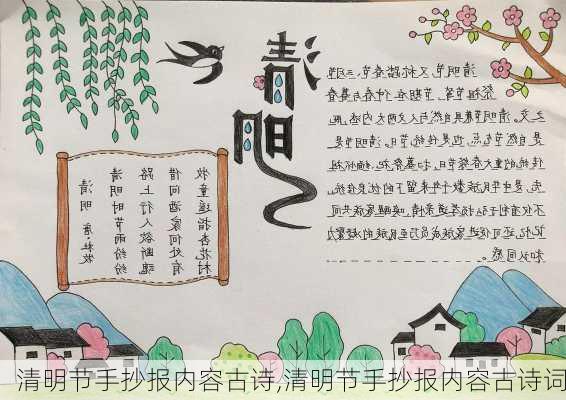 清明
清明 唐·杜牧
清明时节雨纷纷
路上行人欲断魂
借问酒家何处有
牧童遥指杏花村
清明节又称踏春节、三月节、
祭祖节等,节期在仲春与暮春
之交。清明节兼具自然与人文两大内涵,既
是自然节气点,也是传统节日。清明节是
传统的重大春祭节日,扫墓祭祀、缅怀祖
先,是中华民族数千年来留下的优良传统,
不仅有利于弘扬孝道亲情,唤醒家族共同
记忆,还可促进家族成员乃至民族的凝聚力
和认同感。
清明节手抄报内容古诗,清明节手抄报内容古诗词